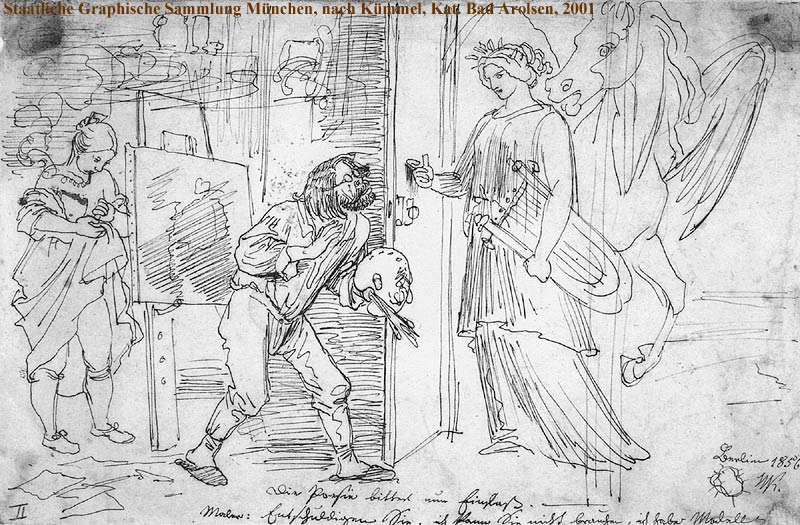 Staatliche Graphische Sammlung München, nach Kümmel, Kat. Bad Arolsen, 2001
Berlin 1856
Die Poesie bittet um Einlaß.
Maler: Entschuldigen Sie, ich kann Sie nicht brauchen, ich habe Modell
II